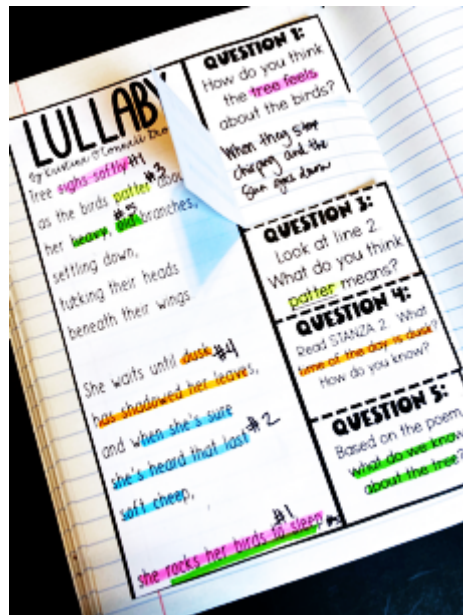 LULLABY
By Kristine O'Connell
Tree sighs softly #1
as the birds patter #3
her heavy, old branches, #5
settling down,
tucking their heads
beneath their wings.
She waits until dusk #4
has shadowed her leaves,
and when she's sure
she's heard that last #2
soft cheep,
she rocks her birds to sleep #1
QUESTION 1:
How do you think
the tree feels
about the birds?
When they stop
chirping and the
sun goes down
QUESTION 3:
Look at line 2.
What do you think
patter means?
QUESTION 4:
Read STANZA 2. What
time of the day is dusk?
How do you know?
QUESTION 5:
Based on the poem,
what do we know
about the tree?